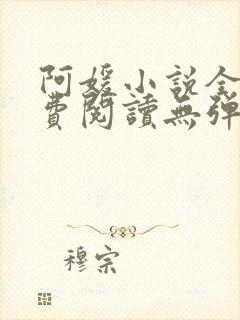 阿媛小說全
費閱讀無彈
穆宗